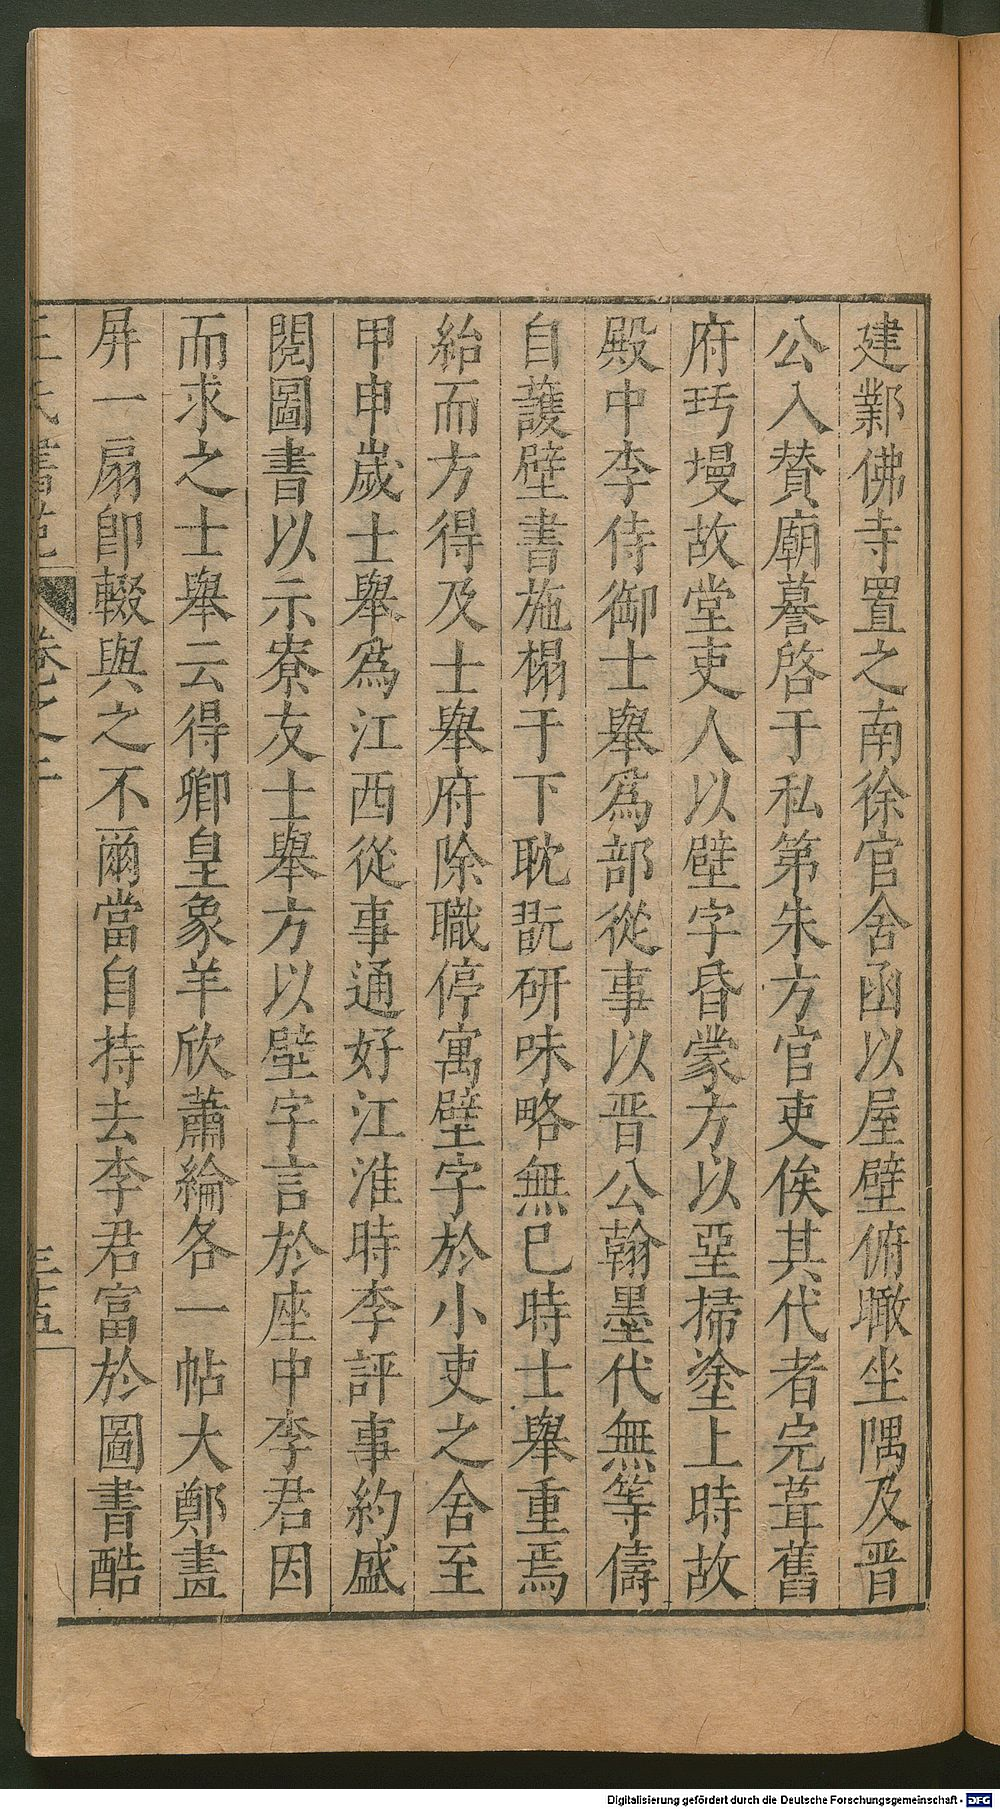 建鄴佛寺置之南徐官舍函以屋壁俯瞰坐隅及晋
公入賛廟謩啓于私第朱方官吏俟其代者完葺舊
府圬墁故堂吏人以壁字昏蒙方以堊掃塗上時故
殿中李侍御士舉爲部從事以晋公翰墨代無等儔
自護壁書施榻于下耽翫研味略無已時士舉重焉
給而方得及士舉府除職停寓壁字於小吏之舍至
甲申歲士舉爲江西從事通好江淮時李評事約盛
閱圖書以示寮友士舉方以壁字言於座中李君因
而求之士舉云得卿皇象羊欣蕭綸各一帖大鄭畫
屏一扇卽輟與之不爾當自持去李君富於圖書酷
王氏書苑 卷之二 三十五
Digitalisierung gefördert durch die Deutsche Forschungsgemeinschaft - DFG